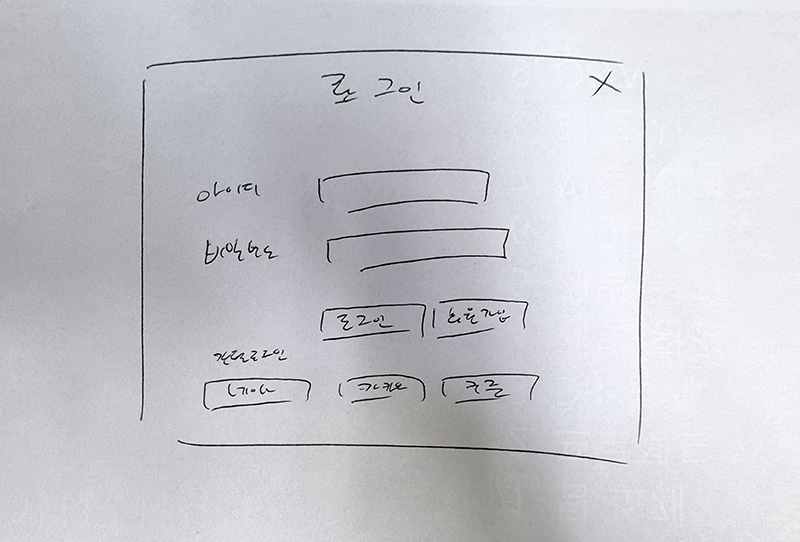 로그인 X
아이디
비밀번호
로그인 회원가입
간편로그인
네이버 카카오 구글